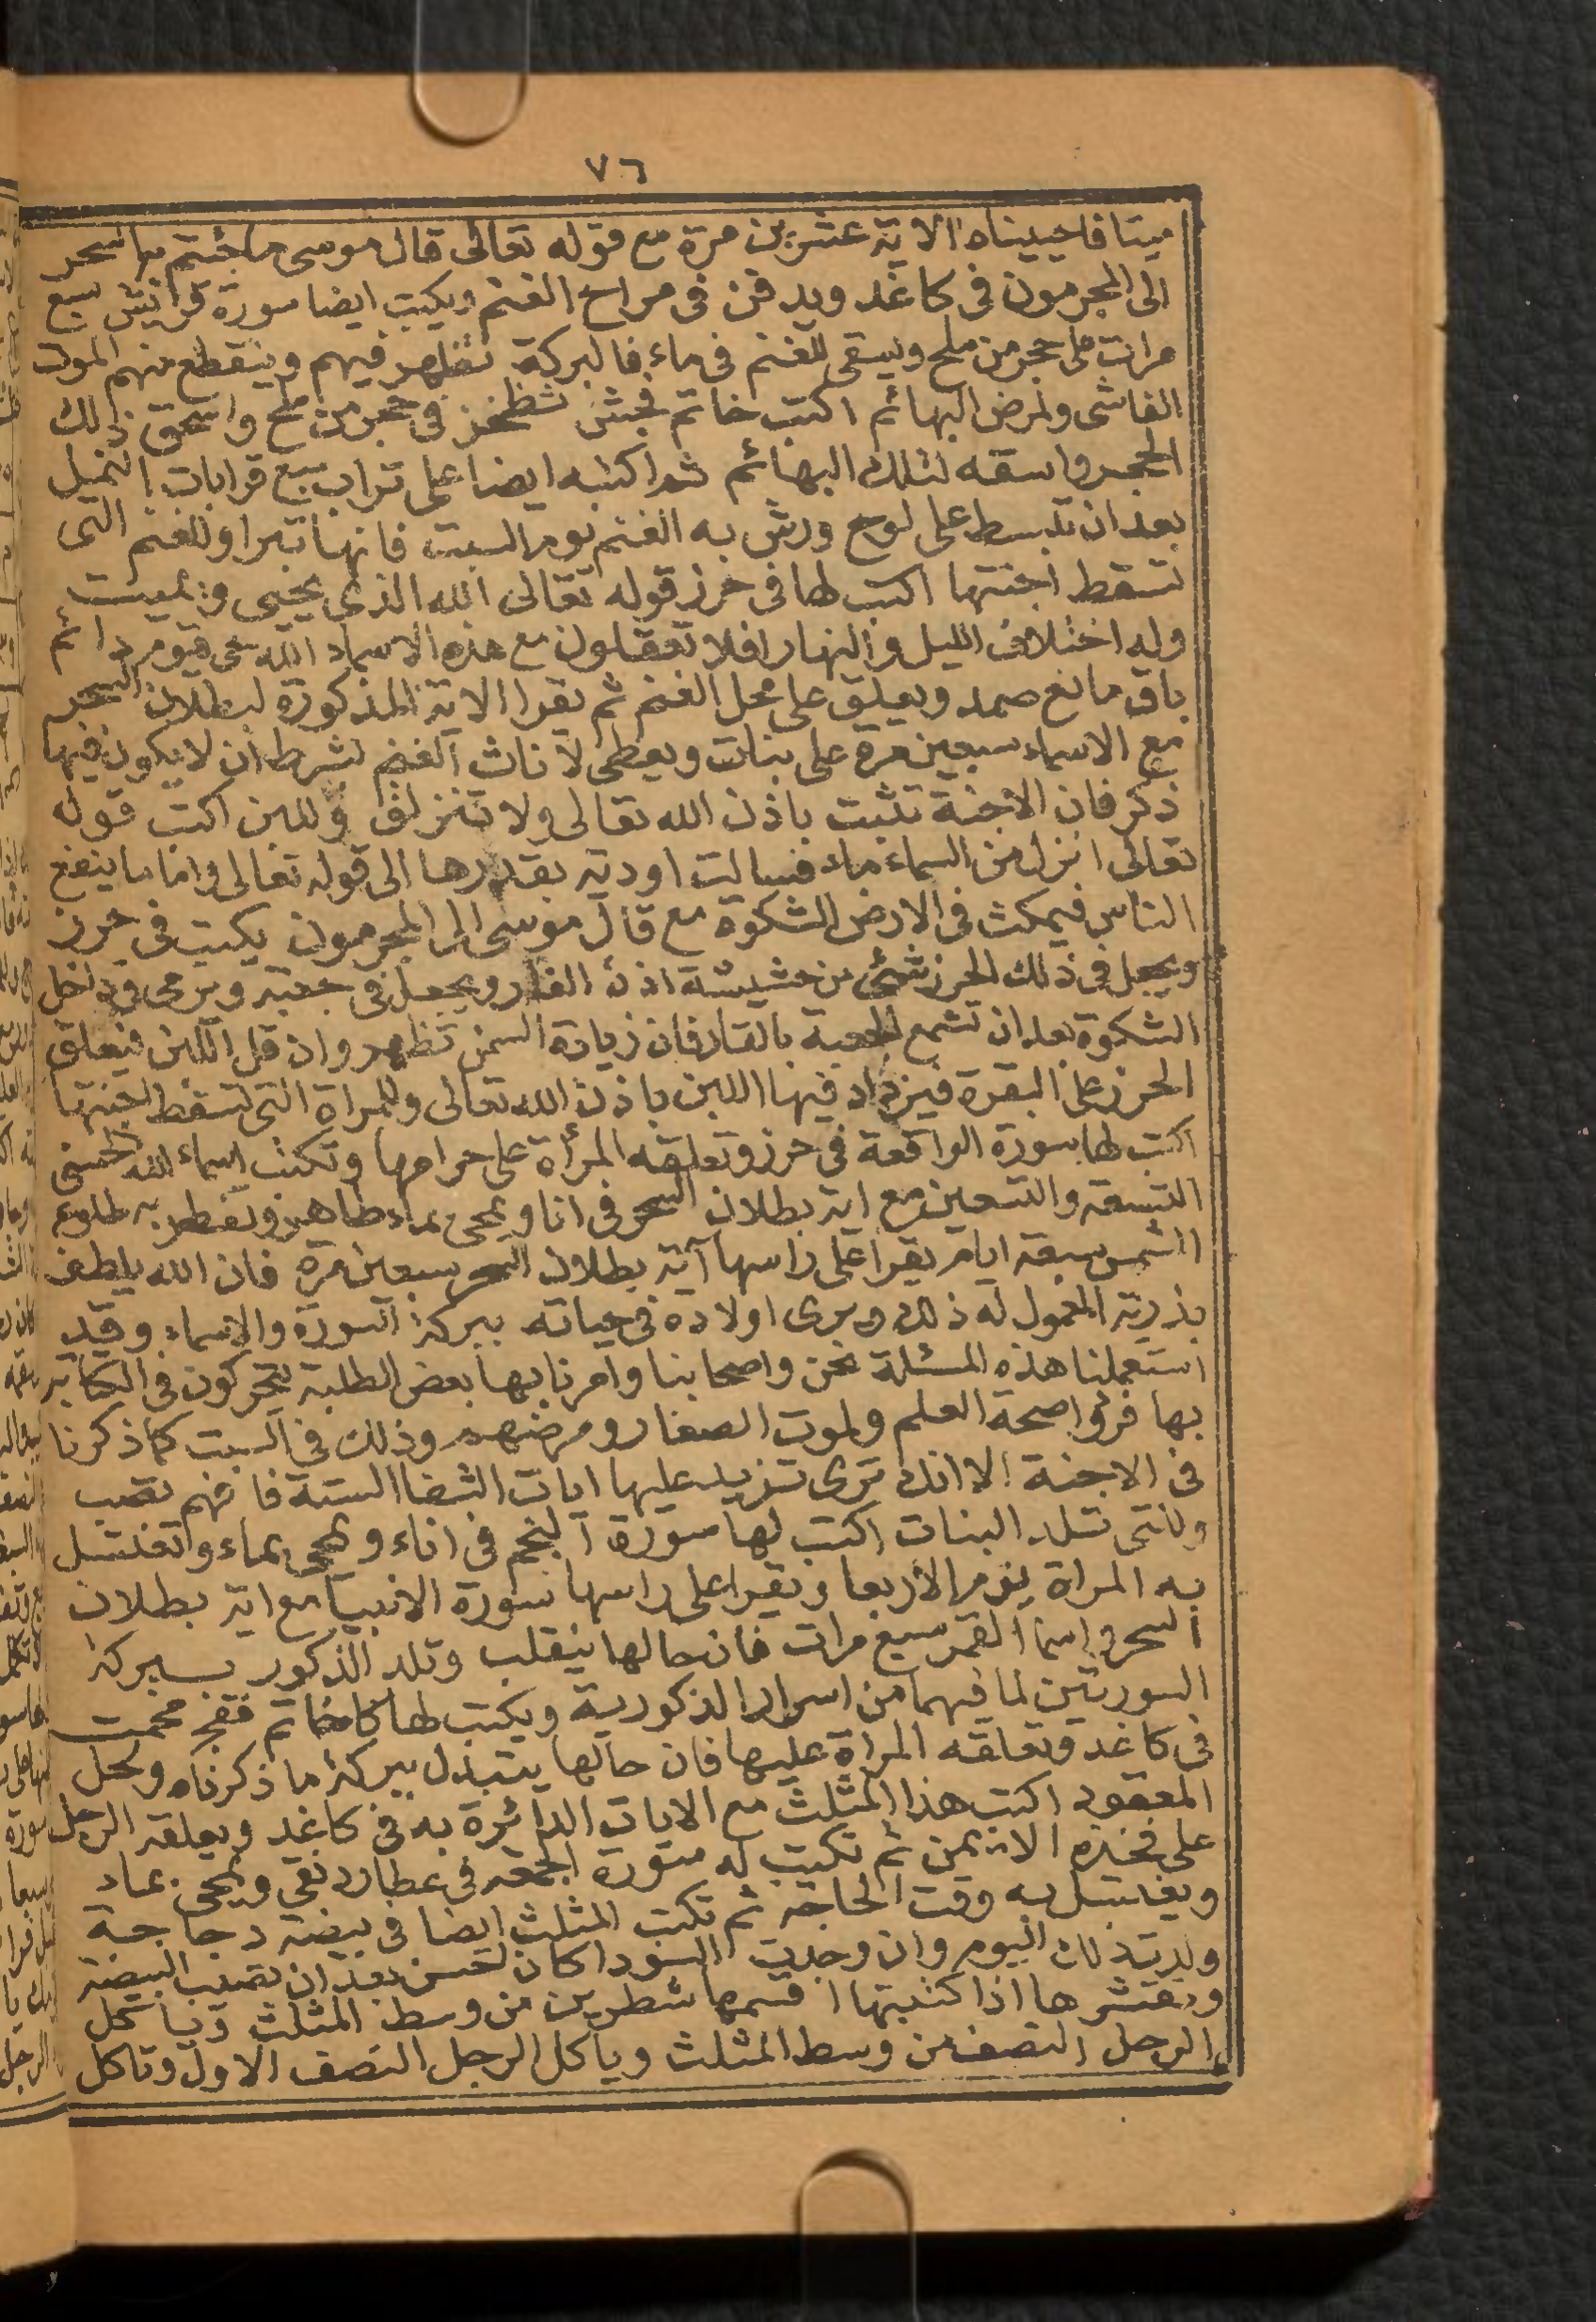 ٧٦
ميتا فاحييناه الاية عشرين مرة مع قوله تعالى قال موسى ما جئتم به السحر
الى المجرمون فى كاغد ويدفن فى مراح الغنم ويكتب ايضا سورة قريش سبع
مرات على حجر من ملح ويسقى للغنم فى ماء فالبركة تظهر فيهم وينقطع منهم الموت
الفاشى ولمرض البهائم اكتب خاتم فجش ثظخز فى حجر من ملح واسحق ذلك
الحجر واسقه لتلك البهائم ثم اكتبه ايضا على تراب سبع قرابات النميل
بعد ان تبسط على لوح ورش به الغنم يوم السبت فانها تبرا وللغنم التى
تسقط اجنتها اكتب لها فى حرز قوله تعالى الله الذى يحيى ويميت
وله اختلاف الليل والنهار افلا تعقلون مع هذه الاسماء الله حى قيوم دائم
باق مانع صمد ويعلق على محل الغنم ثم يقرا الاية المذكورة لبطلان السحر
مع الاسماء سبعين مرة على بنات ويعطى لاناث الغنم بشرط ان لا يكون فيها
ذكر فان الاجنة تثبت باذن الله تعالى ولا تنزلق وللبن اكتب قوله
تعالى انزل من السماء ماء فسالت اودية بقدرها الى قوله تعالى واما ما ينفع
الناس فيمكث فى الارض الشكوة مع قال موسى الى المجرمون يكتب فى حرز
ويجعل فى ذلك الحرز شئ من حشيشة اذن الفار ويجعل فى جعبة ويرمى فى داخل
الشكوة بعد ان تشمع الجعبة بالقار فان زيادة السمن تظهر وان قل اللبن فيعلق
الحرز على البقرة فيزداد فيها اللبن باذن الله تعالى وللمراة التى تسقط اجنتها
اكتب لها سورة الواقعة فى حرز وتعلقه المرأة على حزامها وتكتب اسماء الله الحسنى
التسعة والتسعين مع اية بطلان السحر فى انا ويمحى بماء طاهر وتفطر به طلوع
الشمس سبعة ايام يقرا على راسها آية بطلان السحر سبعين مرة فان الله يلطف
بذرية المعمول له ذلك ويرى اولاده فى حياته ببركة السورة والاسماء وقد
استعملنا هذه المسئلة نحن واصحابنا وامرنا بها بعض الطلبة يتحركون فى الكتابة
بها فرئوا صحة العلم ولموت الصغار ومرضهم وذلك فى السبت كما ذكرنا
فى الاجنة الا انك ترى تزيد عليها ايات الشفا الستة فافهم تصب
ولنتى تلد البنات اكتب لها سورة النجم فى اناء ويمحى بماء وتغتسل
به المراة يوم الأربعا ويقرا على راسها سورة الانبيا مع اية بطلان
السحر واسما القمر سبع مرات فان حالها ينقلب وتلد الذكور ببركة
السورتين لما فيهما من اسرار الذكورية ويكتب لها كا خاتم فقج مخمت
فى كاغد وتعلقه المراة عليها فان حالها يتبدل ببركة ما ذكرناه ولحل
المعقود اكتب هذا المثلث مع الايات الدائرة به فى كاغد ويعلقه الرجل
على فخذه الايمن ثم تكتب له سورة الجمعة فى عطارد نقى ويمحى بماء
ويغتسل به وقت الحاجة ثم تكتب المثلث ايضا فى بيضة دجاجة
ولدته ذلك اليوم وان وجدت السودا كان احسن بعد ان تصلب البيضة
وتقشرها اذا كتبتها اقسمها شطرين من وسط المثلث وياكل
الرجل النصف من وسط المثلث ويأكل الرجل النصف الاول وتاكل